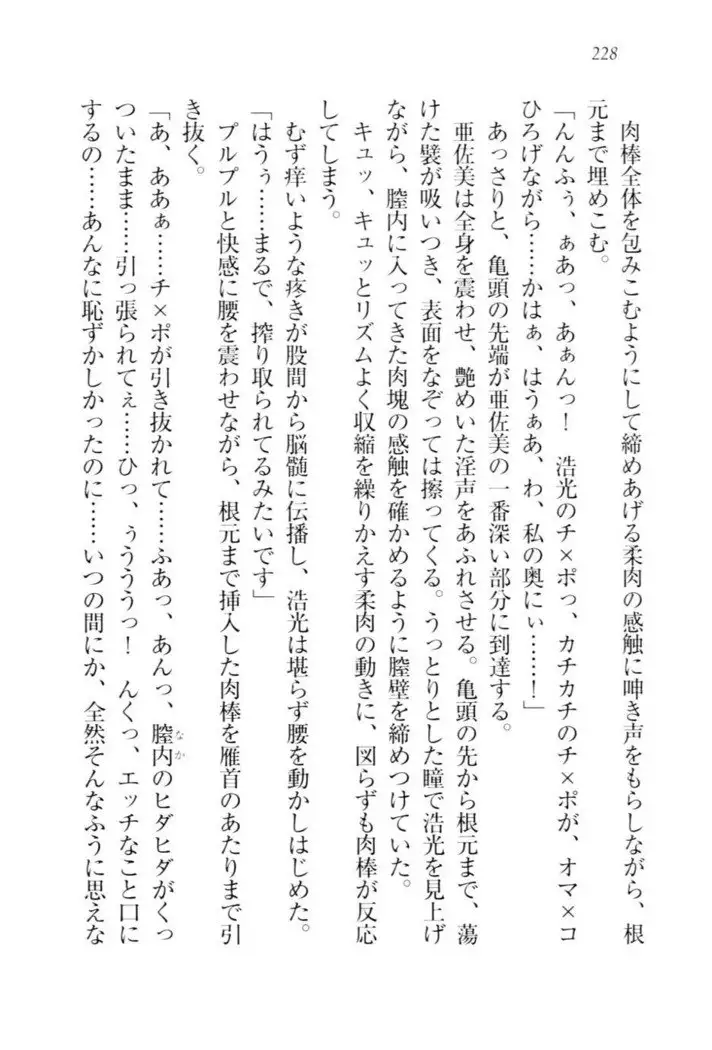 228
肉棒全体を包みこむようにして締めあげる柔肉の感触に呻き声をもらしながら、根
元まで埋めこむ。
「んんふぅ、ぁあっ、あぁんっ！　浩光のチ×ポっ、カチカチのチ×ポが、オマ×コ
ひろげながら……かはぁ、はうぁあ、わ、私の奥にぃ……！」
あっさりと、亀頭の先端が亜佐美の一番深い部分に到達する。
亜佐美は全身を震わせ、艶めいた淫声をあふれさせる。亀頭の先から根元まで、蕩
けた襞が吸いつき、表面をなぞっては擦ってくる。うっとりとした瞳で浩光を見上げ
ながら、膣内に入ってきた肉塊の感触を確かめるように膣壁を締めつけていた。
キュッ、キュッとリズムよく収縮を繰りかえす柔肉の動きに、図らずも肉棒が反応
してしまう。
むず痒いような疼きが股間から脳髄に伝播し、浩光は堪らず腰を動かしはじめた。
「はうぅ……まるで、搾り取られてるみたいです」
プルプルと快感に腰を震わせながら、根元まで挿入した肉棒を雁首のあたりまで引
き抜く。
「あ、ああぁ……チ×ポが引き抜かれて……ふあっ、あんっ、膣内なかのヒダヒダがくっ
ついたまま……引っ張られてぇ……ひっ、ぅうううっ！　んくっ、エッチなこと口に
するの……あんなに恥ずかしかったのに……いつの間にか、全然そんなふうに思えな